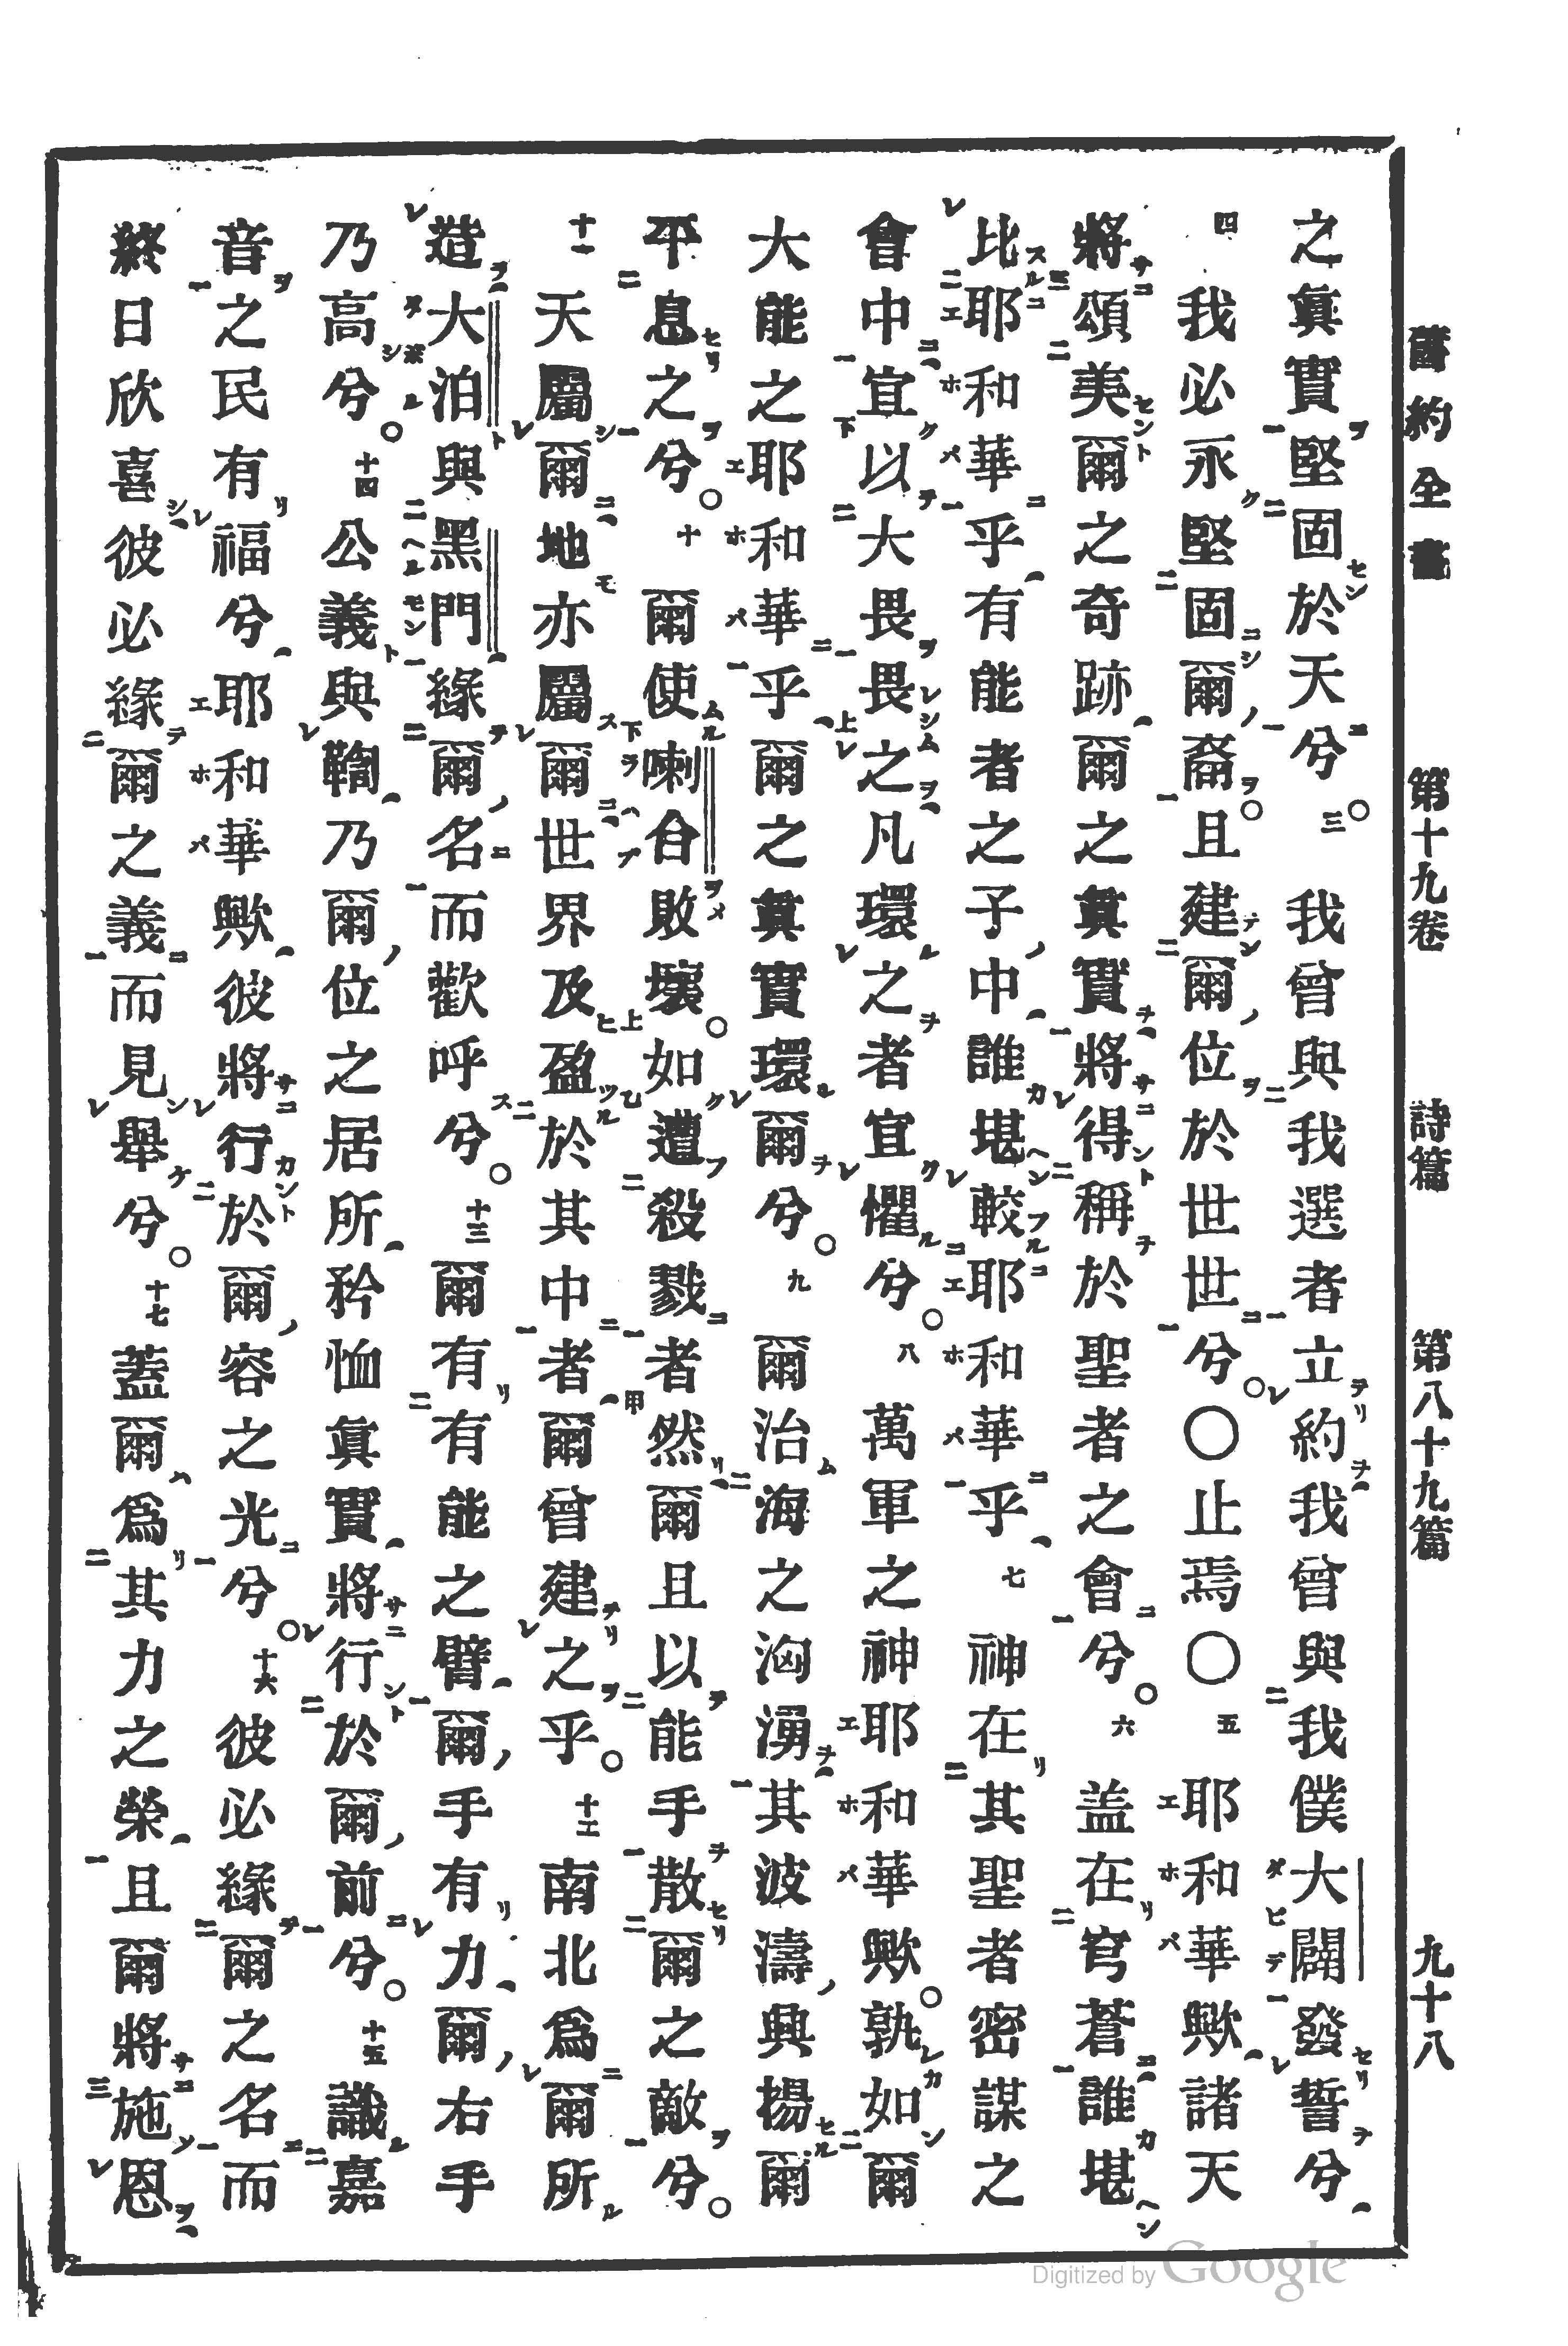 舊約全書 第十九卷 詩篇 第八十九篇 九十八
之眞實堅固於天兮○三 我曾與我選者立約我曾與我僕大闢發誓兮
四 我必永堅固爾裔○且建爾位於世世兮○〇止焉〇五 耶和華歟諸天
將頌美爾之奇跡爾之眞實將得稱於聖者之會兮○六 盖在穹蒼誰堪
比耶和華乎有能者之子中誰堪較耶和華乎七 神在其聖者密謀之
會中宜以大畏畏之凡環之者宜懼兮○八 萬軍之神耶和華歟○孰如爾
大能之耶和華乎爾之眞實環爾兮○九 爾治海之洶湧其波濤興揚爾
平息之兮○十 爾使喇合敗壞○如遭殺戮者然爾且以能手散爾之敵兮○
十一 天屬爾地亦屬爾世界及盈於其中者爾曾建之乎○十二 南北爲爾所
造大泊與黑門緣爾名而歡呼兮○十三 爾有有能之臂爾手有力爾右手
乃高兮○十四 公義與鞫乃爾位之居所矜恤眞實將行於爾前兮○十五 識嘉
音之民有福兮耶和華歟彼將行於爾容之光兮○十六 彼必緣爾之名而
終日欣喜彼必緣爾之義而見舉兮○十七 蓋爾爲其力之榮且爾將施恩
Digitized by Google